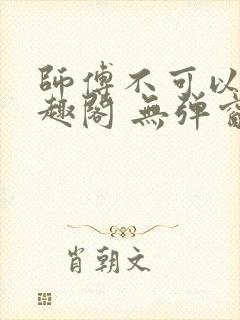 師傅不可以
趣閣 無弹窗
肖朝文